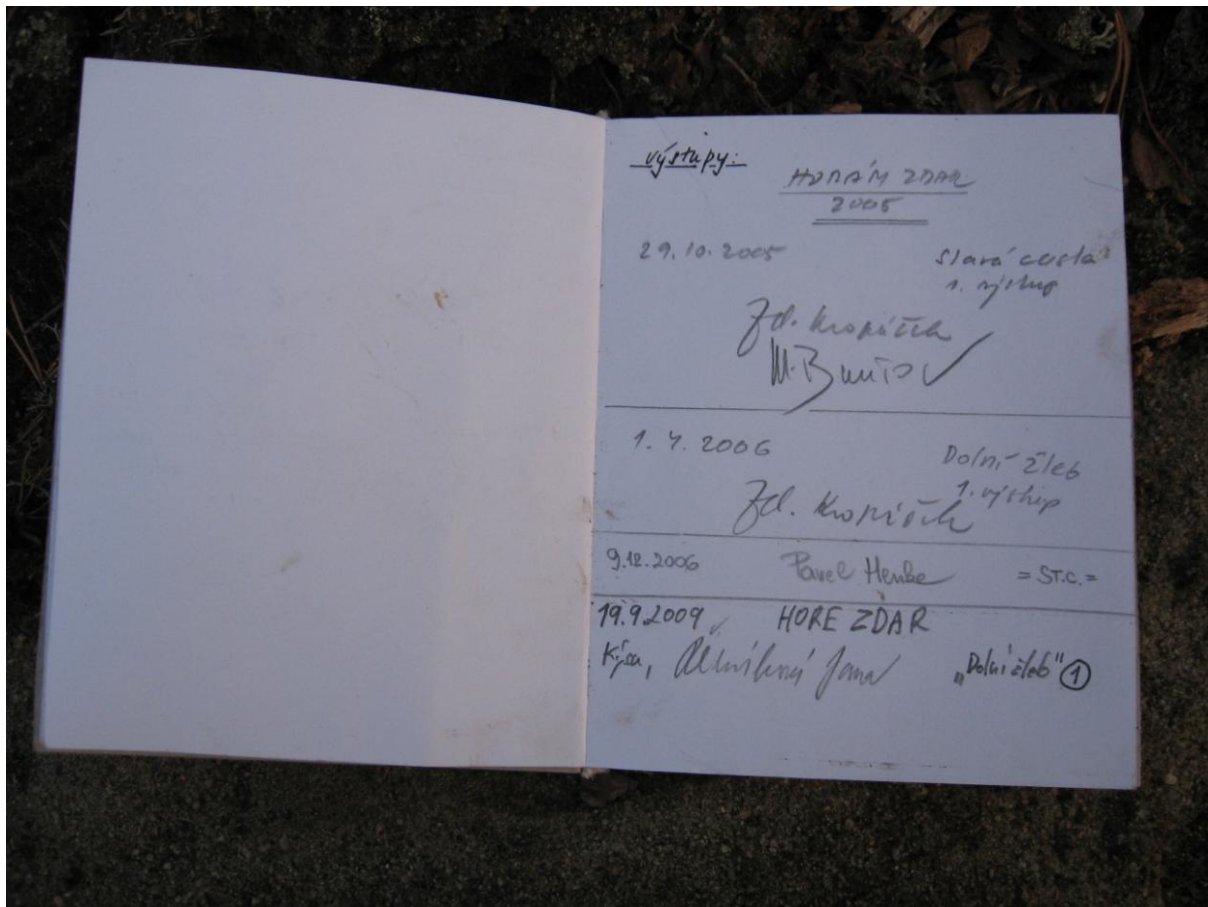 výstupy:
HORÁM ZDAR
2005
29. 10. 2005 Stará cesta
1. výstup
Zd. Kropáček
M.
1. 4. 2006 Dolní žleb
1. výstup
Zd. Kropáček
9.12.2006 Pavel Henke = ST.C. =
19.9.2009 HORE ZDAR
Jana „Dolní žleb" 1